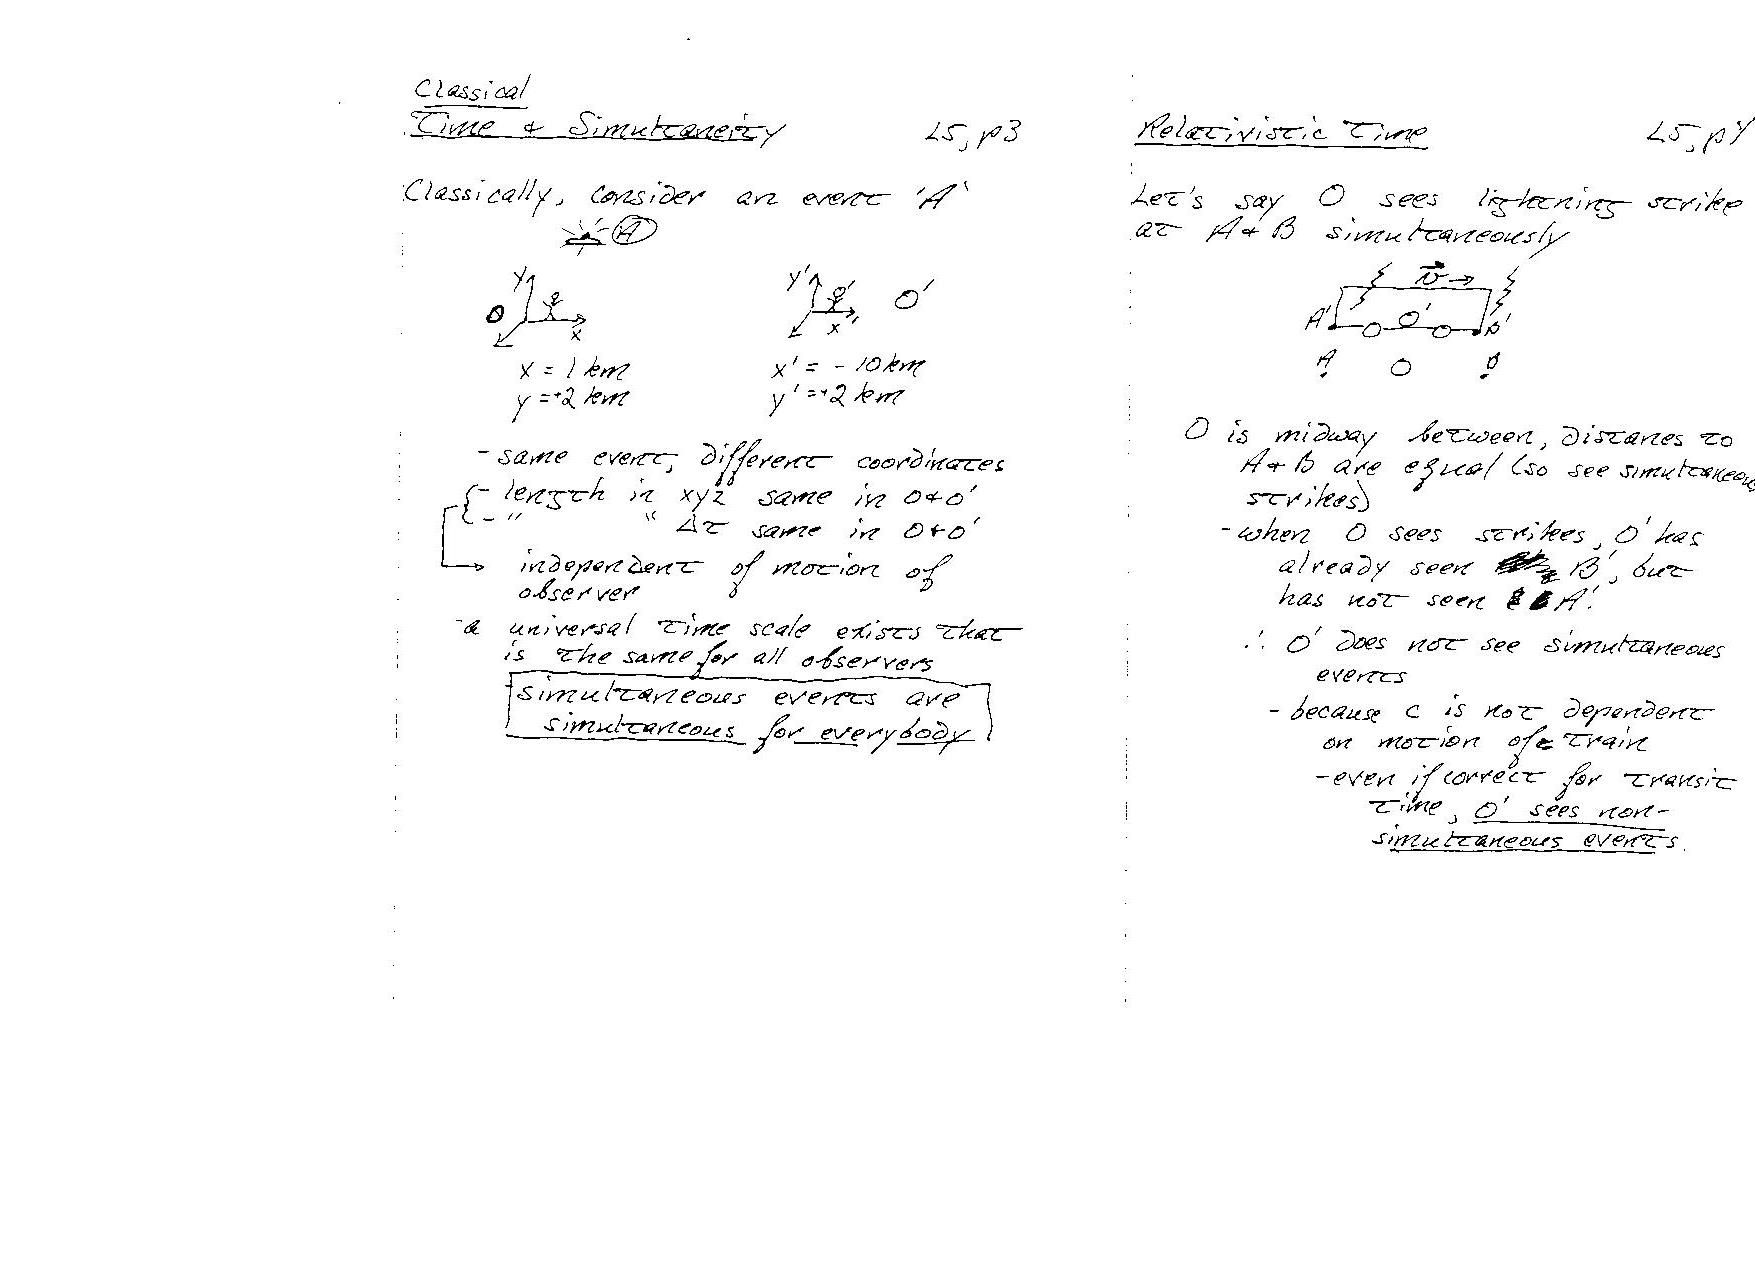 Classical
Time & Simultaneity L5, p3
Classically, consider an event 'A'
A
y y'
O O'
x x'
x = 1 km x' = -10 km
y = +2 km y' = +2 km
- same event, different coordinates
- length in xyz same in O & O'
- " " Δt same in O & O'
independent of motion of
observer
- a universal time scale exists that
is the same for all observers
simultaneous events are
simultaneous for everybody
Relativistic Time L5, p4
Let's say O sees lightning strike
at A & B simultaneously
v
A' O' B'
A O B
O is midway between, distanes to
A & B are equal (so see simultaneous
strikes)
- when O sees strikes, O' has
already seen B', but
has not seen A'.
∴ O' does not see simultaneous
events
- because c is not dependent
on motion of train
- even if correct for transit
time, O' sees non-
simultaneous events.